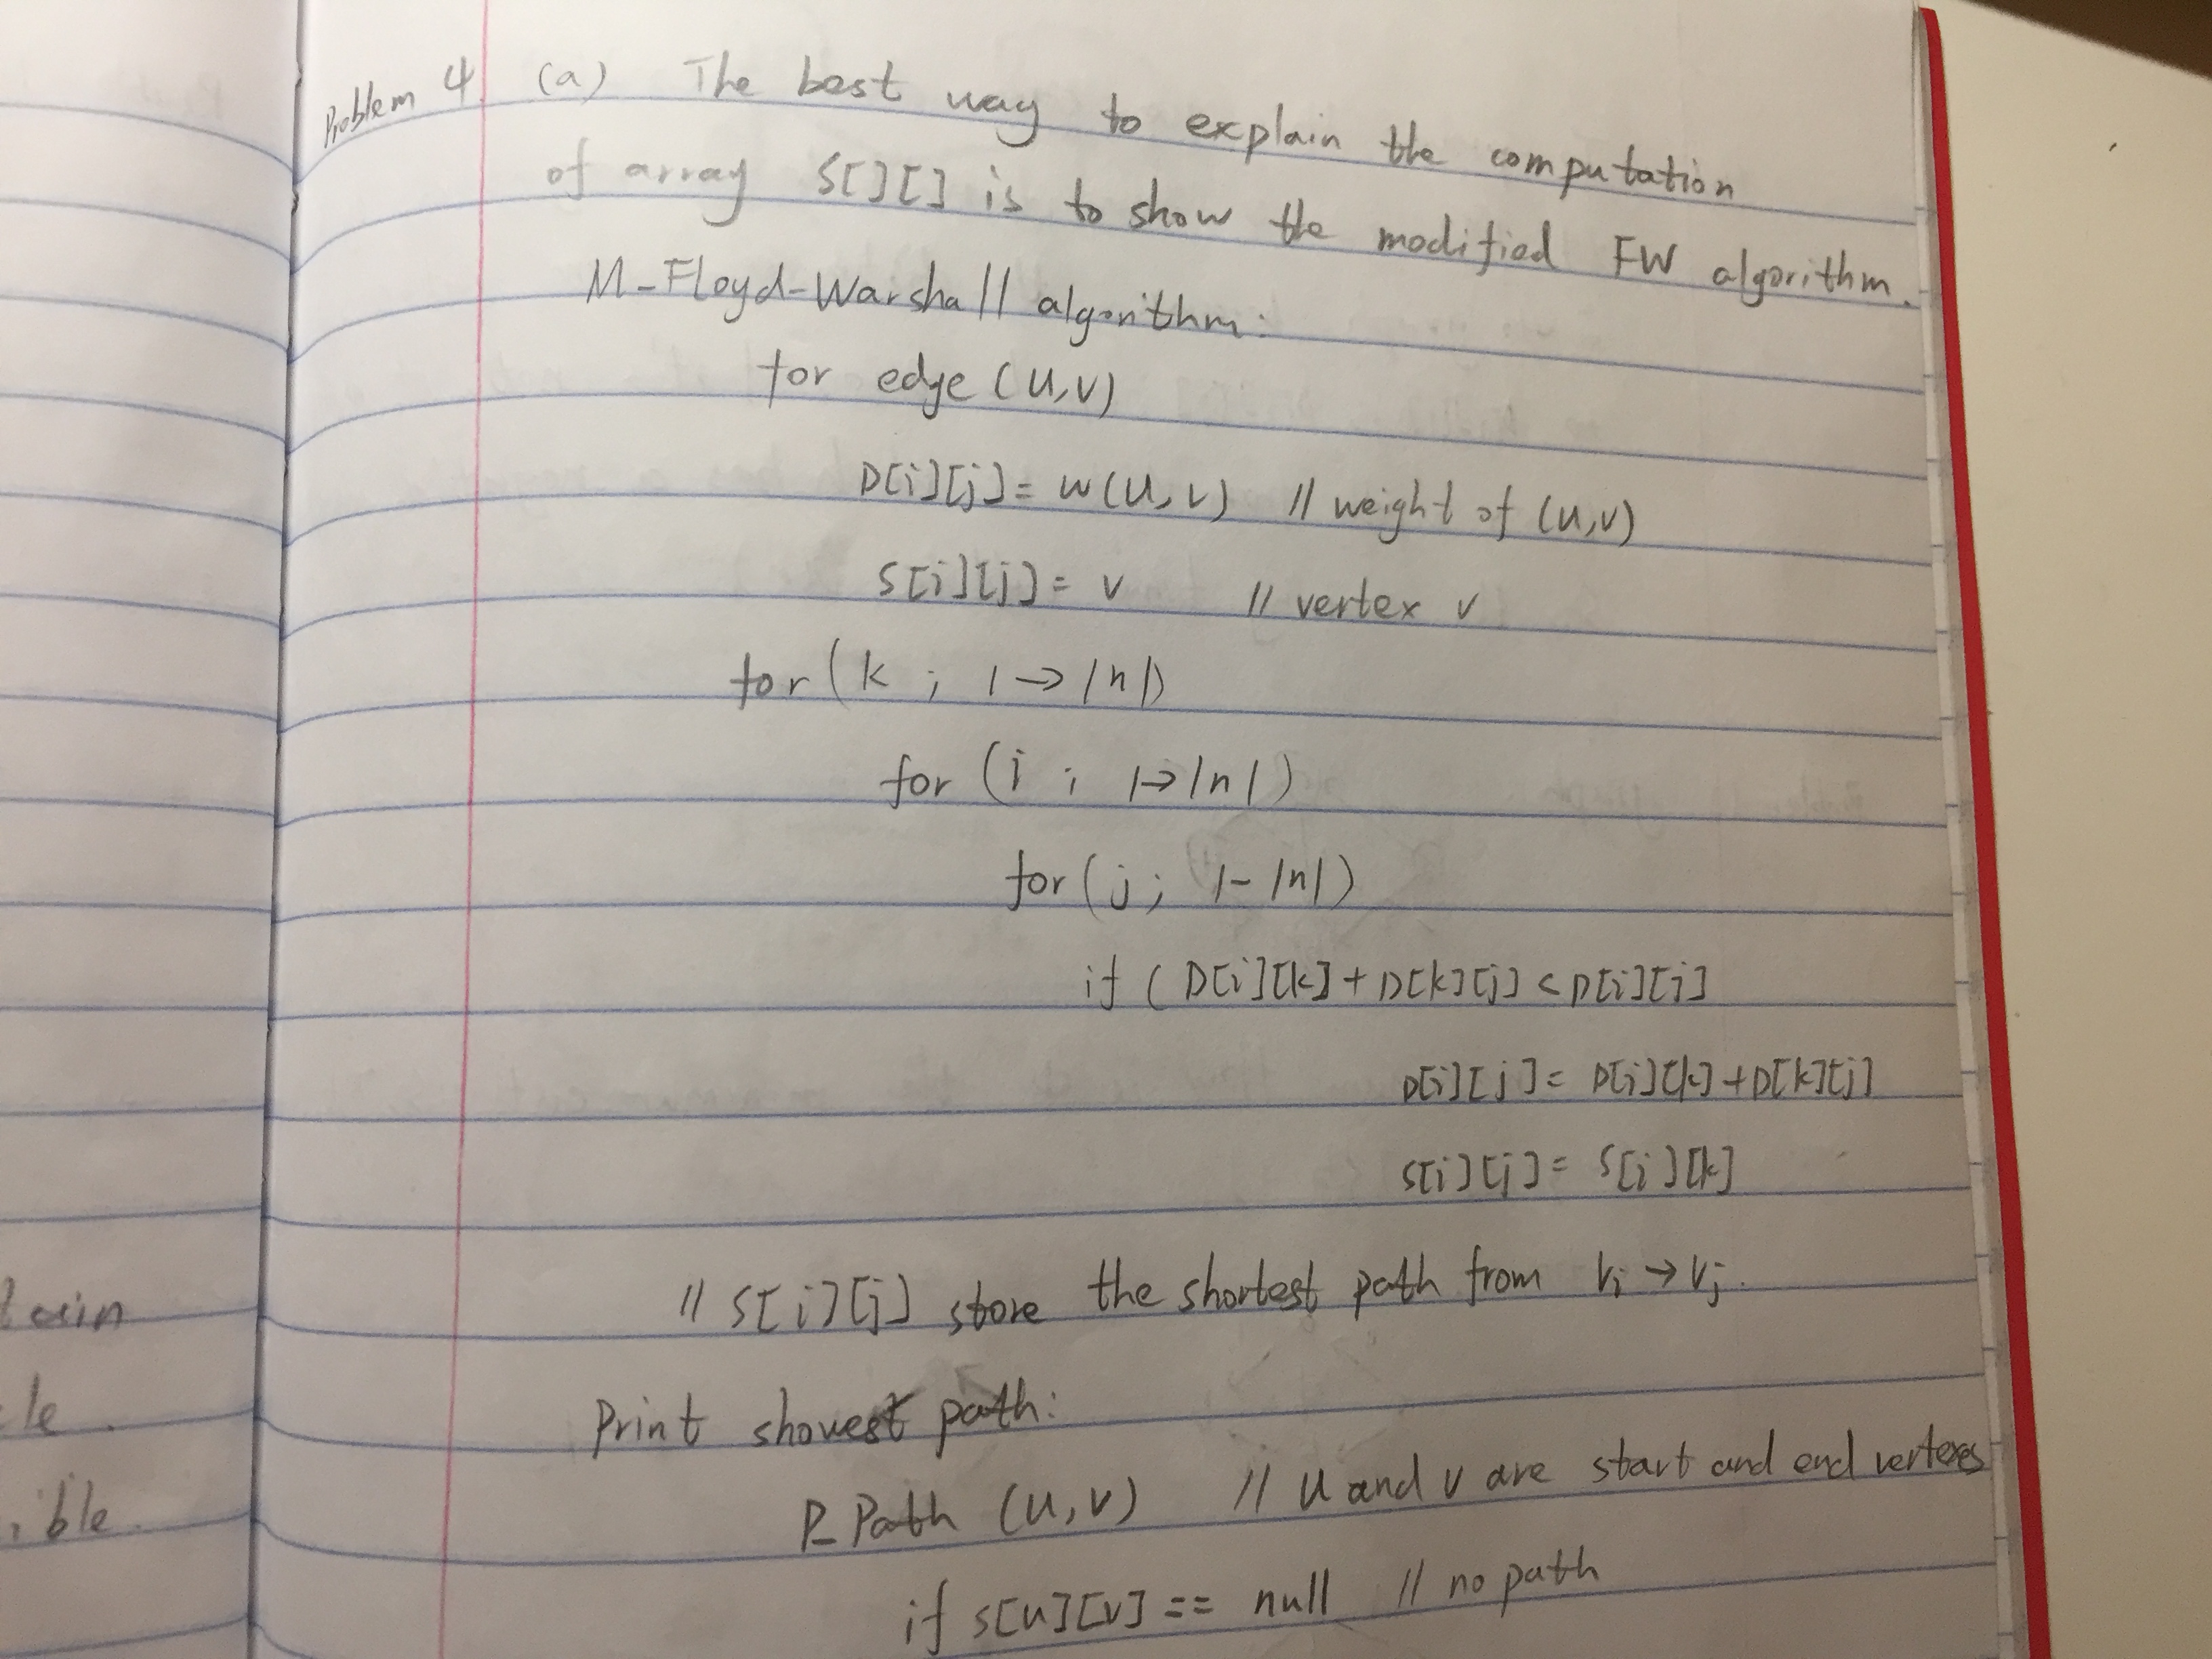 Problem 4 (a) The best way to explain the computation
of array S[][] is to show the modified FW algorithm.
M-Floyd-Warshall algorithm:
for edge (u,v)
D[i][j] = w(u,v) // weight of (u,v)
S[i][j] = v // vertex v
for (k ; 1→|n|)
for (i ; 1→|n|)
for (j ; 1-|n|)
if ( D[i][k] + D[k][j] < D[i][j]
D[i][j] = D[i][k] + D[k][j]
S[i][j] = S[i][k]
// S[i][j] store the shortest path from Vi → Vj.
Print shouest path:
P_Path (u,v) // u and v are start and end vertexes
if S[u][v] == null // no path
le.
ible.